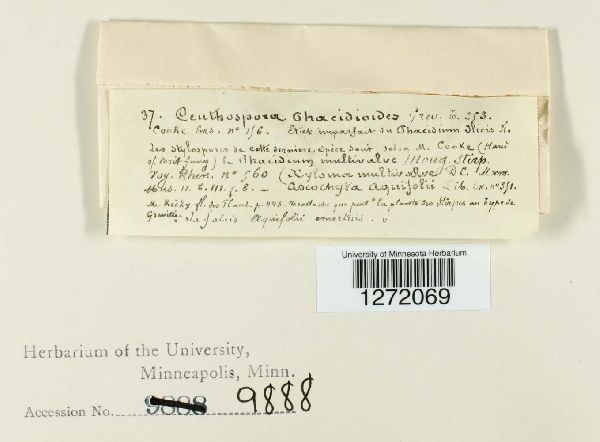 37. Ceuthospora Phacidioides Grev. t. 253.
Cooke Exs. nº 156. Etat imparfait du Phacidium Ilicis
les stylospores de cette dernière espèce sont, selon M. Cooke (Hand
of Brit fung) le Phacidium multivalve Moug. Stirp.
Vog. Rhen. nº 560 (Xyloma multivalve DC. Mem.
Mus. — Ascochyta Aquifolii Lib. Ex. nº 351.
M. Kickx fl. des Fland. p. 443. que la plante des Stirpes au type de
Greville. foliis Aquifolii emortuis. "
University of Minnesota Herbarium
1272069
Herbarium of the University,
Minneapolis, Minn.
Accession No. 9888 9888